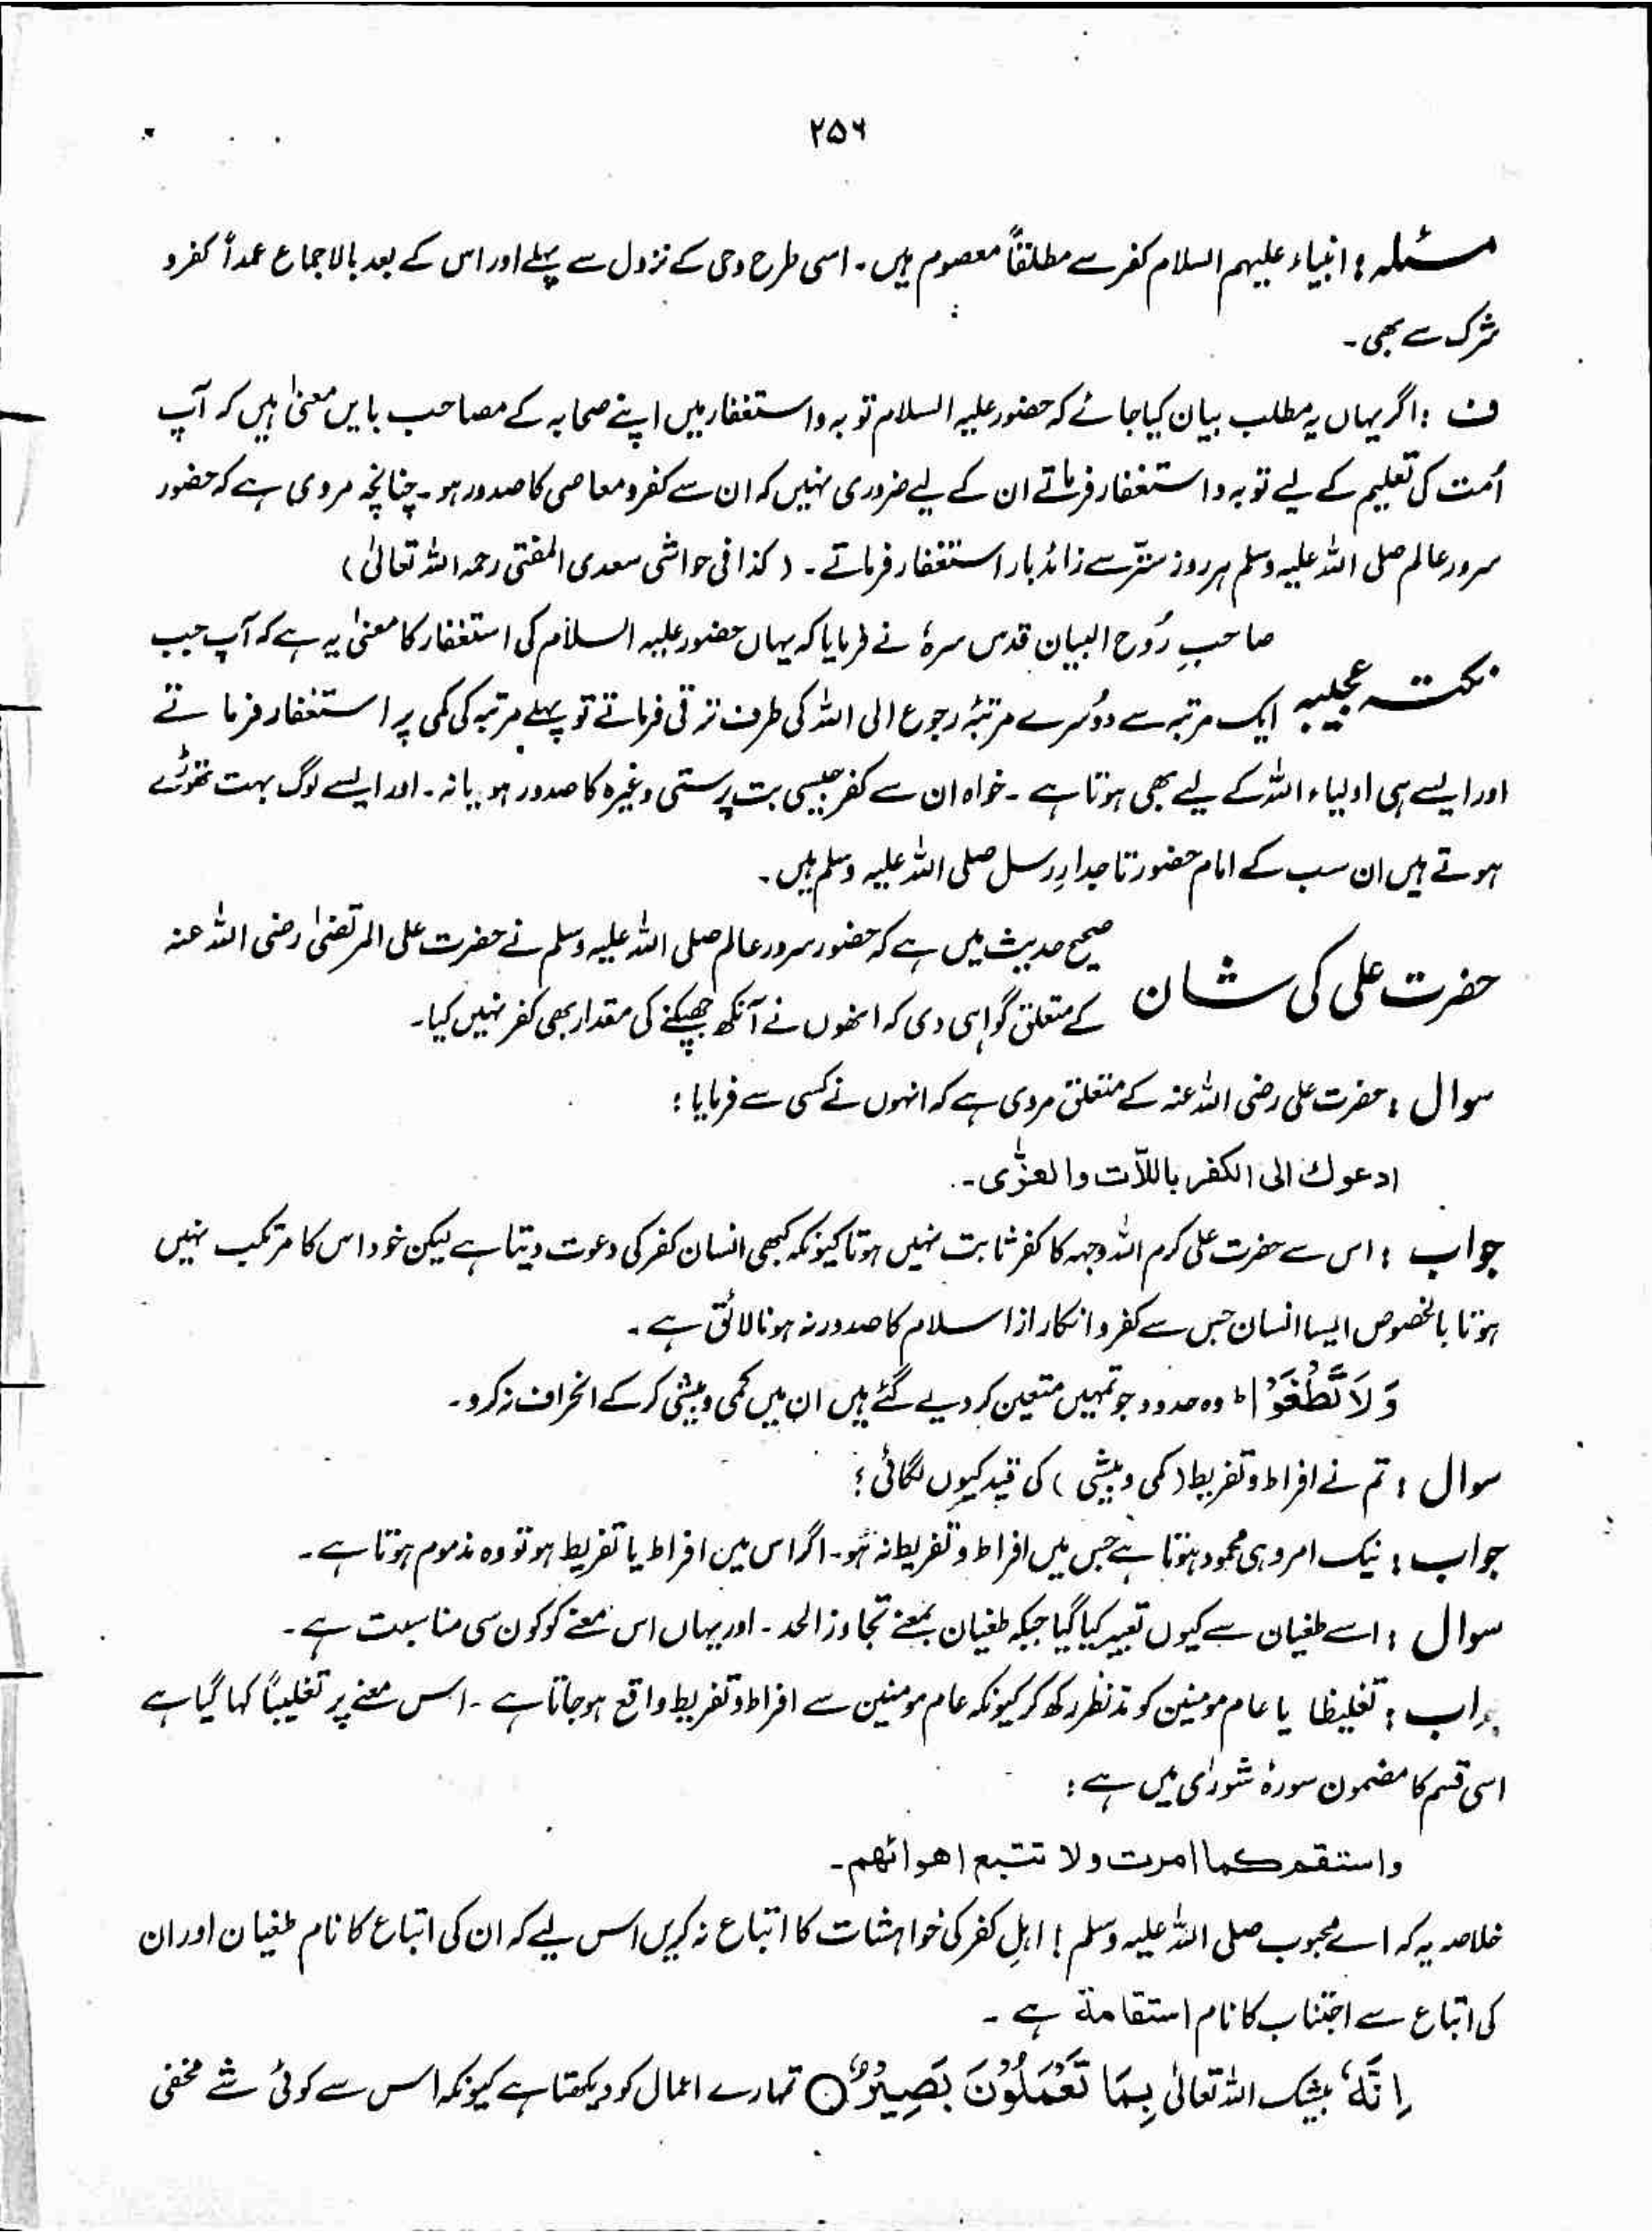 ۲۵۶
مسئلہ : انبیاء علیہم السلام کفر سے مطلقاً معصوم ہیں۔ اسی طرح وحی کے نزول سے پہلے اور اس کے بعد بالاجماع عمداً کفر و
شرک سے بھی۔
ف : اگر یہاں یہ مطلب بیان کیا جائے کہ حضور علیہ السلام توبہ و استغفار میں اپنے صحابہ کے مصاحب بایں معنیٰ ہیں کہ آپ
اُمت کی تعلیم کے لیے توبہ و استغفار فرماتے ان کے لیے ضروری نہیں کہ ان سے کفر و معاصی کا صدور ہو۔ چنانچہ مروی ہے کہ حضور
سرور عالم صلی اللہ علیہ وسلم ہر روز ستّر سے زائد بار استغفار فرماتے۔ (کذا فی حواشی سعدی المفتی رحمہ اللہ تعالیٰ)
نکتہ عجیبہ صاحبِ رُوح البیان قدس سرہٗ نے فرمایا کہ یہاں حضور علیہ السلام کی استغفار کا معنیٰ یہ ہے کہ آپ جب
ایک مرتبہ سے دوُسرے مرتبۂ رجوع الی اللہ کی طرف ترقی فرماتے تو پہلے مرتبہ کی کمی پر استغفار فرماتے
اور ایسے ہی اولیاء اللہ کے لیے بھی ہوتا ہے۔ خواہ ان سے کفر جیسی بت پرستی وغیرہ کا صدور ہو یا نہ۔ اور ایسے لوگ بہت تھوڑے
ہوتے ہیں ان سب کے امام حضور تاجدارِ رسل صلی اللہ علیہ وسلم ہیں۔
حضرت علی کی شان صحیح حدیث میں ہے کہ حضور سرور عالم صلی اللہ علیہ وسلم نے حضرت علی المرتضیٰ رضی اللہ عنہ
کے متعلق گواہی دی کہ انھوں نے آنکھ جھپکنے کی مقدار بھی کفر نہیں کیا۔
سوال : حضرت علی رضی اللہ عنہ کے متعلق مروی ہے کہ انہوں نے کسی سے فرمایا :
ادعوك الی الکفر باللّات والعزّٰی۔
جواب : اس سے حضرت علی کرم اللہ وجہہ کا کفر ثابت نہیں ہوتا کیونکہ کبھی انسان کفر کی دعوت دیتا ہے لیکن خود اس کا مرتکب نہیں
ہوتا بالخصوص ایسا انسان جس سے کفر و انکار از اسلام کا صدور نہ ہونا لائق ہے۔
وَلَا تَطْغَوْا ؕ وہ حدود جو تمہیں متعین کر دیے گئے ہیں ان میں کمی و بیشی کر کے انحراف نہ کرو۔
سوال : تم نے افراط و تفریط (کمی و بیشی) کی قید کیوں لگائی ؟
جواب : نیک امر وہی محمود ہوتا ہے جس میں افراط و تفریط نہ ہو۔ اگر اس میں افراط یا تفریط ہو تو وہ مذموم ہوتا ہے۔
سوال : اسے طغیان سے کیوں تعبیر کیا گیا جبکہ طغیان بمعنے تجاوز الحد۔ اور یہاں اس معنے کو کون سی مناسبت ہے۔
جواب : تغلیظا یا عام مومنین کو مدنظر رکھ کر کیونکہ عام مومنین سے افراط و تفریط واقع ہو جاتا ہے۔ اس معنے پر تغلیباً کہا گیا ہے
اسی قسم کا مضمون سورۂ شورٰی میں ہے :
واستقم کما امرت ولا تتبع اھوائھم۔
خلاصہ یہ کہ اے محبوب صلی اللہ علیہ وسلم ! اہلِ کفر کی خواہشات کا اتباع نہ کریں اس لیے کہ ان کی اتباع کا نام طغیان اور ان
کی اتباع سے اجتناب کا نام استقامۃ ہے۔
اِنَّهٗ بیشک اللہ تعالیٰ بِمَا تَعْمَلُوْنَ بَصِیْرٌ ○ تمہارے اعمال کو دیکھتا ہے کیونکہ اس سے کوئی شے مخفی